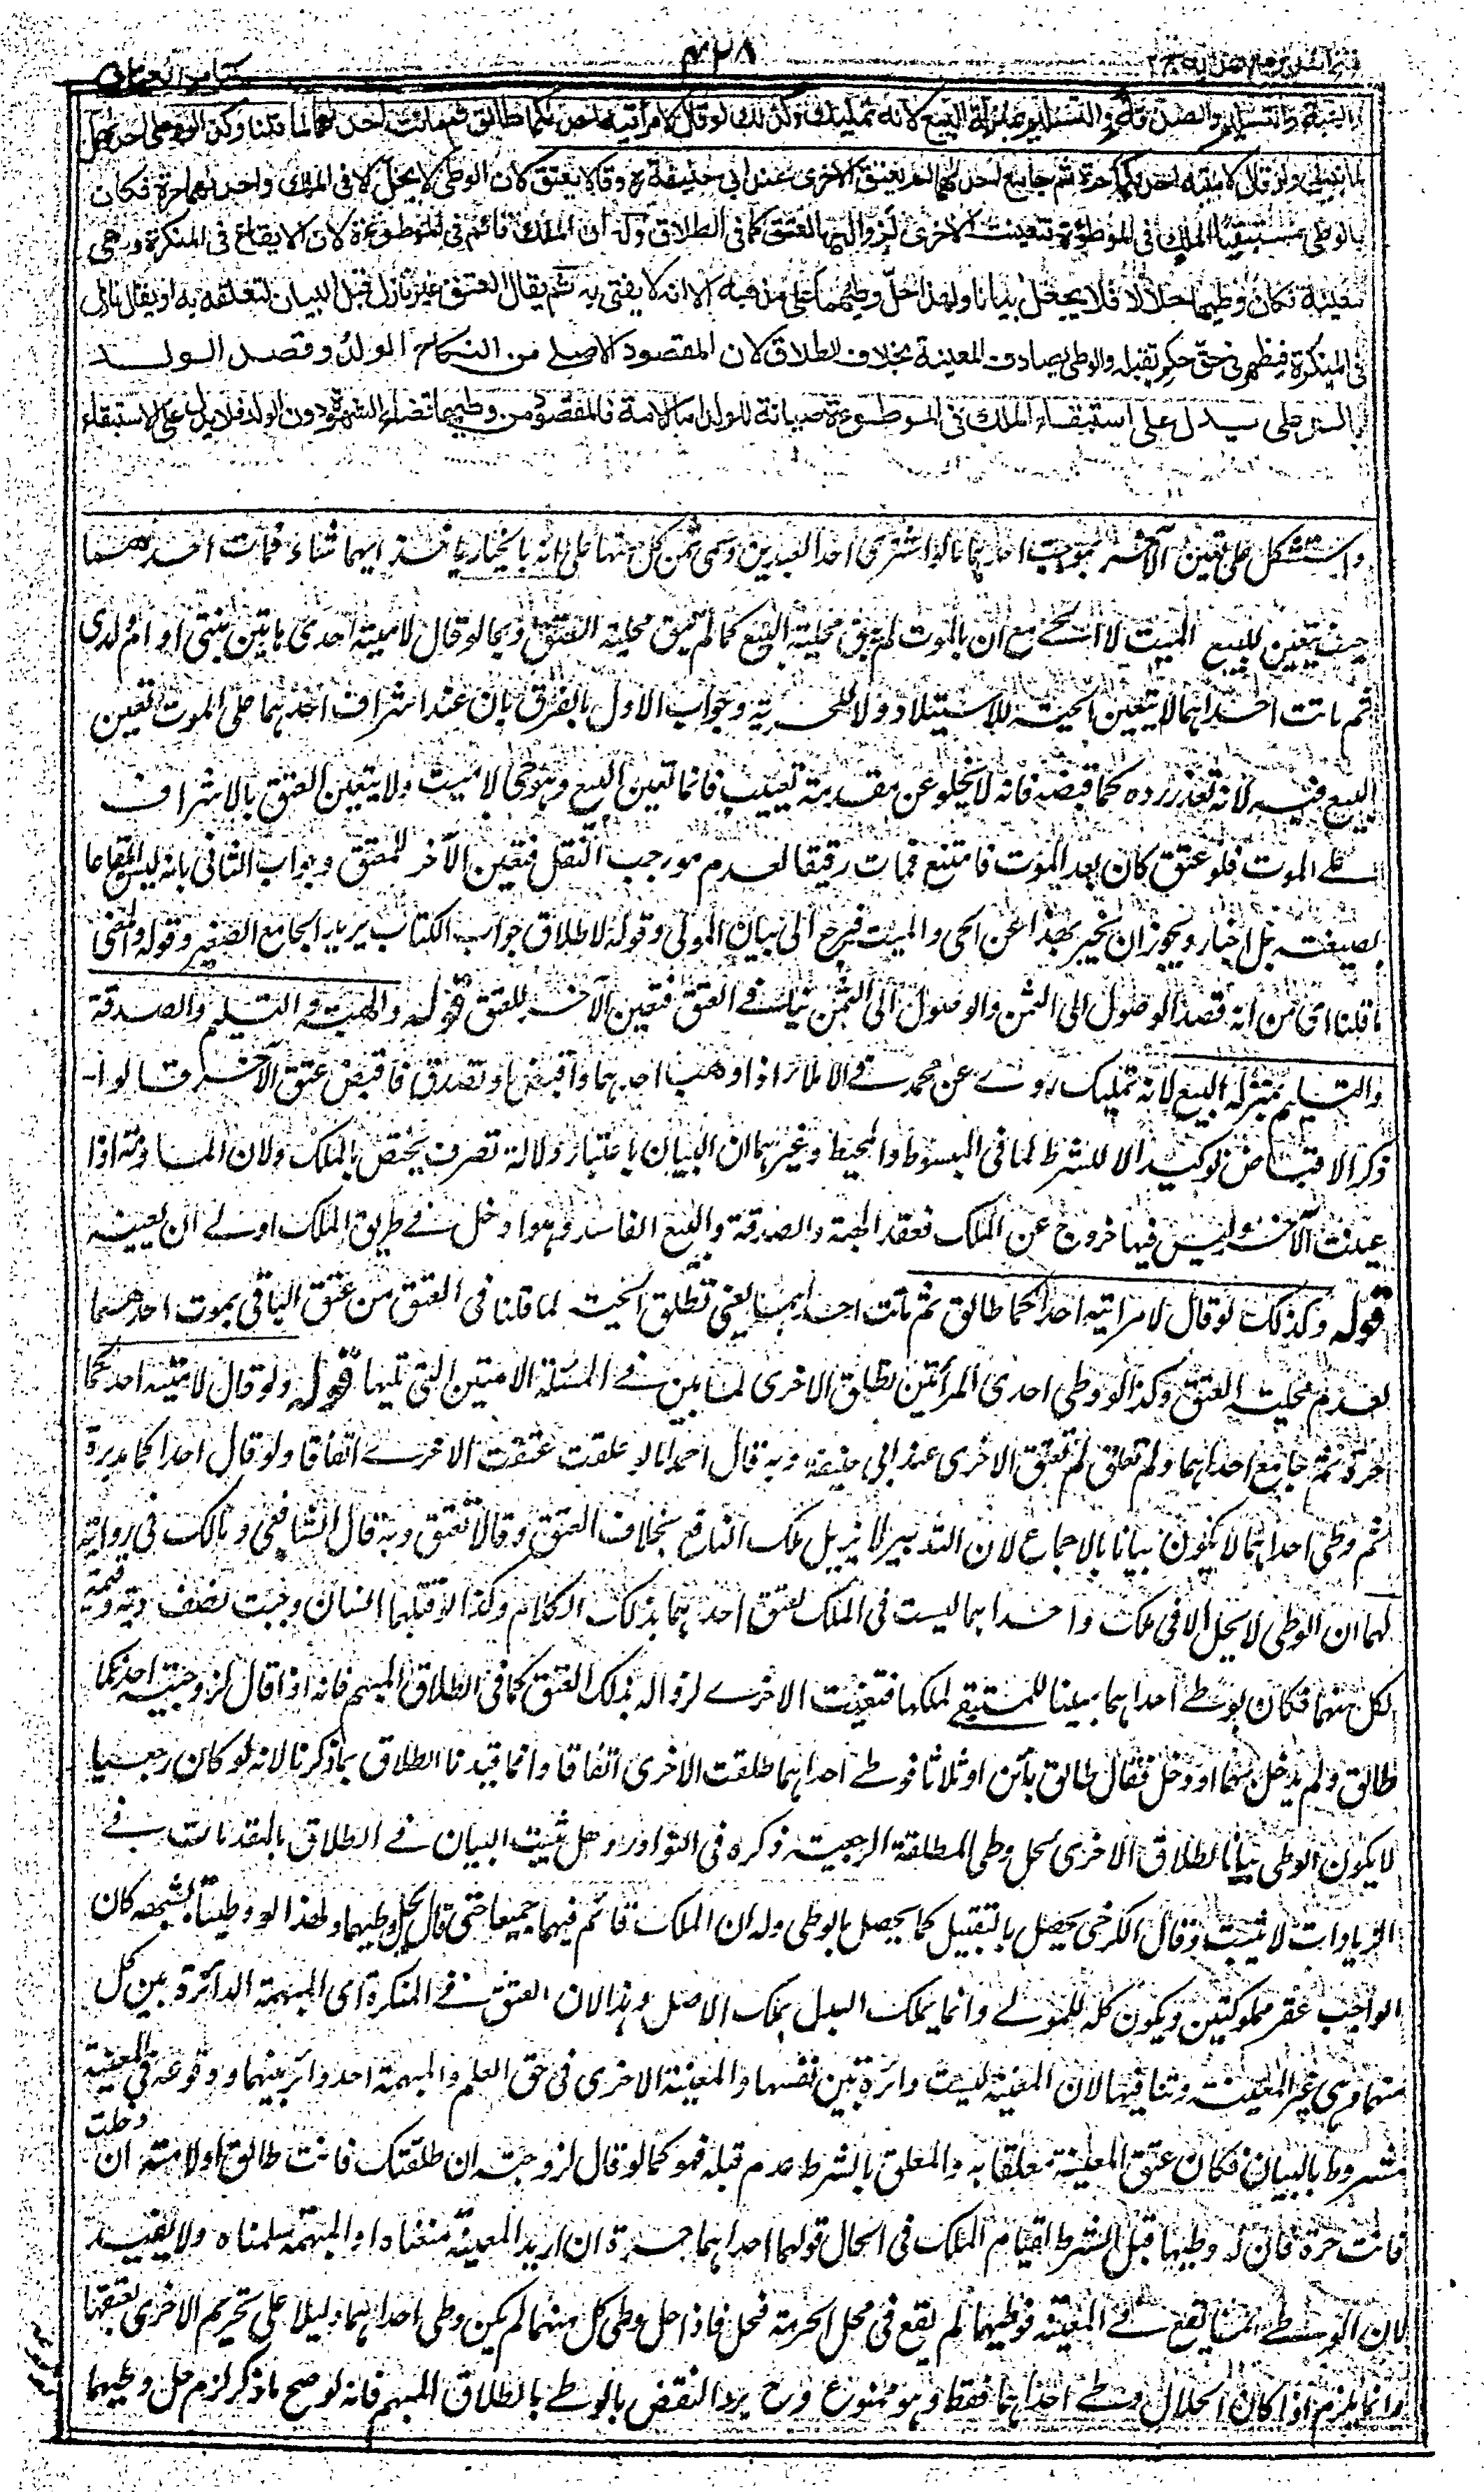 ۴۲۸
كتاب العتاق
والهبة والتسليم والصدقة والتسليم بمنزلة البيع لانه تمليك وكذلك لو قال لامرأتيه احدىكما طالق ثم ماتت احدىهما لما قلنا وكذا لو وطى احدىهما
لما نبين ولو قال لامتيه احدىكما حرة ثم جامع احدىهما لم يعتق الاخرى عند ابي حنيفة رح وقالا يعتق لان الوطى لا يحل الا فى الملك واحدىهما حرة فكان
بالوطى مستبقيا الملك فى الموطوءة فتعينت الاخرى لزواله بالعتق كما فى الطلاق وله ان الملك قائم فى الموطوءة لان الايقاع فى المنكرة وهى
معينة فكان وطيها حلالا فلا يجعل بيانا ولهذا حل وطيهما على مذهبه الا انه لا يفتى به ثم يقال العتق غير نازل قبل البيان لتعلقه به او يقال نازل
فى المنكرة فيظهر فى حق حكم تقبله والوطى يصادف المعينة بخلاف الطلاق لان المقصود الاصلى من النكاح الولد وقصد الولد
بالوطى يدل على استبقاء الملك فى الموطوءة صيانة للولد اما الامة فالمقصود من وطيها قضاء الشهوة دون الولد فلا يدل على الاستبقاء
واستشكل على تعين الآخر بموت احدهما بما لو اشترى احد العبدين وسمى ثمن كل منهما على انه بالخيار ياخذ ايهما شاء فمات احدهما
حيث يتعين للبيع الميت لا الحى مع ان بالموت لم يبق محلية البيع كما لم يبق محلية العتق وبما لو قال لامتيه احدى هاتين بنتى او ام ولدى
ثم ماتت احداهما لا يتعين الحية للاستيلاد ولا للحرية وجواب الاول بالفرق بان عند اشراف احدهما على الموت تعين
البيع فيه لانه تعذر رده كما قبضه فانه لا يخلو عن مقدمة تعييب فانما تعين البيع وهو حى لا ميت ولا يتعين العتق بالاشراف
على الموت فلو عتق كان بعد الموت فامتنع فمات رقيقا لعدم موجب النقل فتعين الآخر للعتق وجواب الثانى بانه ليس ايقاعا
بصيغته بل اخبار ويجوز ان يخبر بهذا عن الحى والميت فيرجع الى بيان المولى وقوله لاطلاق جواب الكتاب يريد به الجامع الصغير وقوله والمعنى
ما قلنا اى من انه قصد الوصول الى الثمن والوصول الى الثمن ينافى العتق فتعين الآخر للعتق قوله والهبة والتسليم والصدقة
والتسليم بمنزلة البيع لانه تمليك روى عن محمد فى الاملاء اذا وهب احدهما واقبضه او تصدق فاقبض عتق الآخر قالوا
ذكر الاقباض توكيدا لا للشرط لما فى المبسوط والمحيط وغيرهما ان البيان باعتبار دلالة تصرف يختص بالملك ولان المساومة اذا
عينت الآخر وليس فيها خروج عن الملك فعقد الهبة والصدقة والبيع الفاسد وهو ادخل فى طريق الملك اولى ان يعينه
قوله وكذلك لو قال لامراتيه احداكما طالق ثم ماتت احداهما يعنى تطلق الحية لما قلنا فى العتق من عتق الباقى بموت احدهما
لعدم محلية العتق وكذا لو وطى احدى المرأتين تطلق الاخرى لما نبين فى المسئلة الامتين التى تليها قوله ولو قال لامتيه احداكما
حرة ثم جامع احداهما ولم تعلق لم تعتق الاخرى عند ابى حنيفة وبه قال احمد اما لو علقت عتقت الاخرى اتفاقا ولو قال احداكما مدبرة
ثم وطى احداهما لا يكون بيانا بالاجماع لان التدبير لا يزيل ملك المنافع بخلاف العتق وقالا تعتق وبه قال الشافعى ومالك فى رواية
لهما ان الوطى لا يحل الا فى ملك واحداهما ليست فى الملك لعتق احدهما بذلك الكلام وكذا لو قتلهما انسان وجبت نصف دية وقيمة
لكل منهما فكان بوطى احداهما مبينا للمستبقى لملكها فتعينت الاخرى لزواله بملك العتق كما فى الطلاق المبهم فانه اذا قال لزوجتيه احداكما
طالق ولم يدخل بهما او دخل فقال طالق بائن او ثلاثا فوطى احداهما طلقت الاخرى اتفاقا وانما قيدنا الطلاق بما ذكرنا لانه لو كان رجعيا
لا يكون الوطى بيانا لطلاق الاخرى لحل وطى المطلقة الرجعية ذكره فى النوادر وهل يثبت البيان فى الطلاق بالمقدمات فى
الزيادات لا يثبت وقال الكرخى يحصل بالتقبيل كما يحصل بالوطى وله ان الملك قائم فيهما جميعا حتى قال بحل وطيهما ولهذا لو وطيتا بشبهة كان
الواجب عقر مملوكتين ويكون كله للمولى وانما يملك البدل بملك الاصل وهذا لان العتق فى المنكرة اى المبهمة الدائرة بين كل
منهما وهى غير المعينة وتنافيها لان المعينة ليست دائرة بين نفسها والمعينة الاخرى فى حق العلم والمبهمة احد دائر بينهما ووقوعه فى المعينة
مشروط بالبيان فكان عتق المعينة معلقا به والمعلق بالشرط عدم قبله فهو كما لو قال لزوجته ان طلقتك فانت طالق او لامته ان دخلت
فانت حرة فان له وطيها قبل الشرط لقيام الملك فى الحال قولهما احداهما حرة ان اريد المعينة منعناه او المبهمة سلمناه ولا يفيد
لان الوطى انما يقع فى المعينة فوطيهما لم يقع فى محل الحرمة فحل فاذا حل وطى كل منهما لم يكن وطى احداهما دليلا على تحريم الاخرى بعتقها
وانما يلزم اذا كان الحلال وطى احداهما فقط وهو ممنوع وح يرد النقض بالوطى بالطلاق المبهم فانه لو صح ما ذكر لزم حل وطيهما